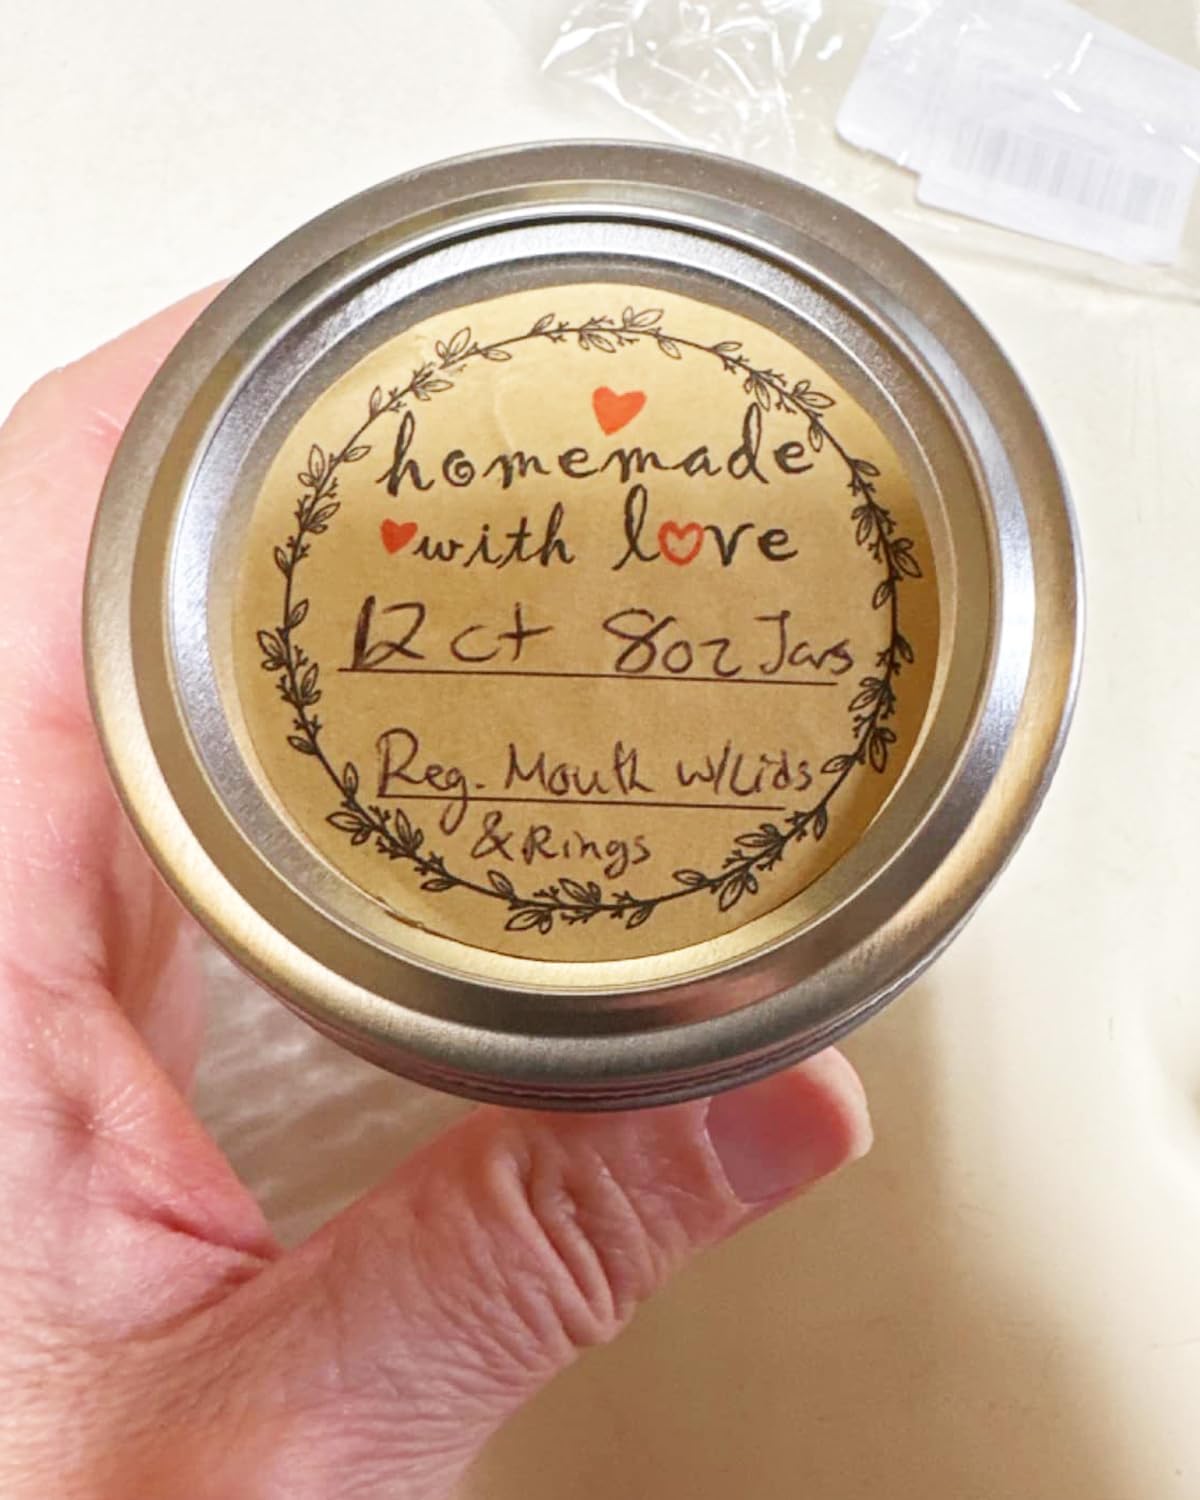 homemade
with love
12 ct 8oz Jars
Reg. Mouth w/Lids
& Rings